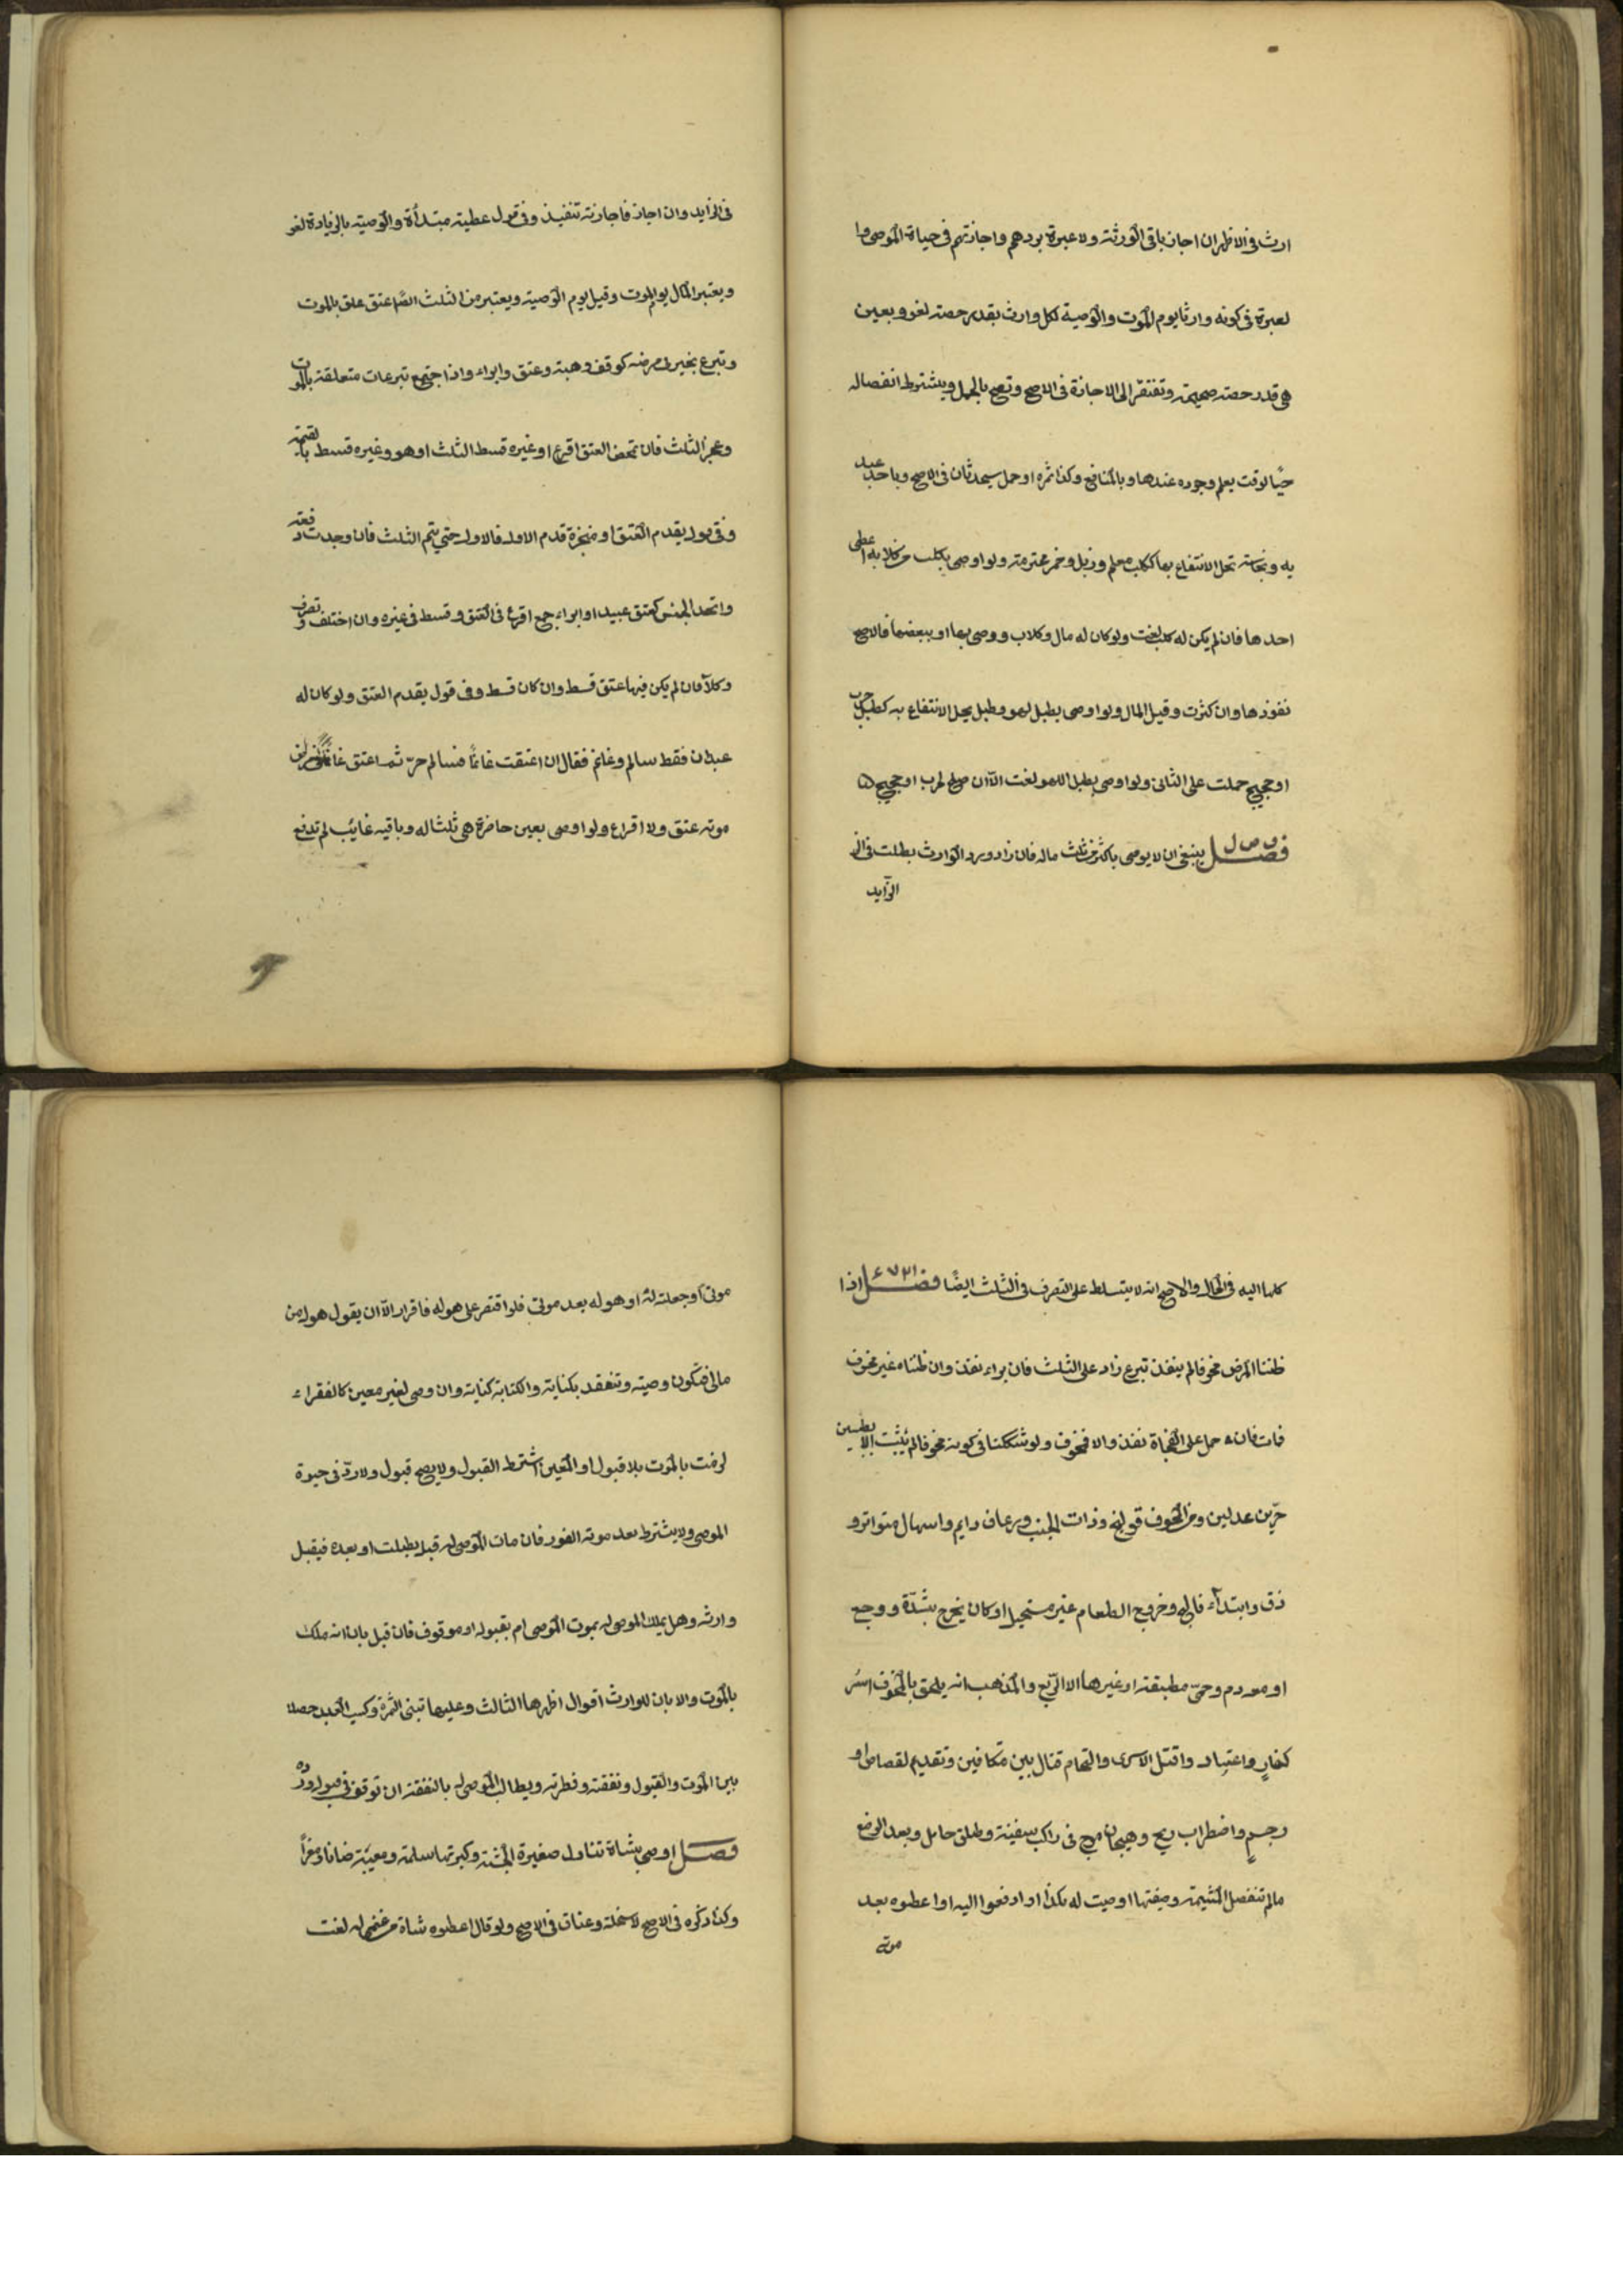 ارث في الاظهر ان اجاز باقي الورثة ولا عبرة بردهم واجازتهم في حياة الموصي وا
لعبرة في كونه وارثا يوم الموت والوصية لكل وارث بقدر حصته لغو وبعين
هي قدر حصته صحيحة وتفتقر الى الاجازة في الاصح وتصح بالحمل ويشترط انفصاله
حيًا لوقت يعلم وجوده عندها وبالمنافع وكذا ثمره او حمل سيحدثان في الاصح وباحد عبد
يه ونجاسة تحل الانتفاع بها ككلب معلم وزبل وخمر محترمة ولو اوصى بكلب من كلابه اعطى
احدها فان لم يكن له كلب لغت ولو كان له مال وكلاب ووصى بها او ببعضها فالاصح
نفوذها وان كثرت وقيل المال ولو اوصى بطبل لهو وطبل يحل الانتفاع به كطبل حرب
او حجيج حملت على الثاني ولو اوصى بطبل اللهو لغت الا ان صلح لحرب او حجيج
فصل ينبغي ان لا يوصي باكثر من ثلث ماله فان زاد ورد الوارث بطلت في الز
الزآيد
في الزايد وان اجاز فاجازته تنفيذ وفي قول عطية مبتدأة والوصية بالزيادة لغو
ويعتبر المال يوم الموت وقيل يوم الوصية ويعتبر من الثلث ايضًا عتق علق بالموت
وتبرع نجز في مرضه كوقف وهبة وعتق وابراء واذا اجتمع تبرعات متعلقة بالموت
وعجز الثلث فان تمحض العتق اقرع او غيره قسط الثلث او هو وغيره قسط بالقيمة
وفي قول يقدم العتق او منجزة قدم الاول فالاول حتى يتم الثلث فان وجدت دفعة
واتحد الجنس كعتق عبيد او ابراء جمع اقرع في العتق وقسط في غيره وان اختلف وتصرف
وكلآ فان لم يكن فيها عتق قسط وان كان قسط وفي قول يقدم العتق ولو كان له
عبدان فقط سالم وغانم فقال ان اعتقت غانمًا فسالم حرّ ثم اعتق غانمًا في مرض
موته عتق ولا اقراع ولو اوصى بعين حاضرة هي ثلث ماله وباقيه غايب لم تدفع
كلها اليه في الحال والاصح انه لا يتسلط على التصرف في الثلث ايضًا فصل اذا
ظننا المرض مخوفا لم ينفذ تبرع زاد على الثلث فان براء نفذ وان ظنناه غير مخوف
فمات فان حمل على الفجاة نفذ والا فمخوف ولو شككنا في كونه مخوفا لم يثبت الا بطبيبين
حرّين عدلين ومن المخوف قولنج وذات الجنب ورعاف دايم واسهال متواتر و
ذق وابتدآء فالج وخروج الطعام غير مستحيل او كان يخرج بشدّة ووجع
او معه دم وحمّى مطبقة او غيرها الا الرّبع والمذهب انه يلحق بالمخوف اسر
كفار واعتياد واقتل الاسرى والتحام قتال بين متكافين وتقديم لقصاص او
رجم واضطراب ريح وهيجان موج في راكب سفينة وطلق حامل وبعد الوضع
مالم تنفصل المشيمة وصيغتها اوصيت له بكذا او ادفعوا اليه او اعطوه بعد
موته
موتى او جعلته له او هو له بعد موتي فلو اقتصر على هو له فاقرار الا ان يقول هو له من
مالي فتكون وصية وتنعقد بكناية والكتابة كناية وان وصى لغير معين كالفقراء
لزمت بالموت بلا قبول او المعين اشترط القبول ولا يصح قبول ولا ردّ في حيوة
الموصي ولا يشترط بعد موته الفور فان مات الموصى له قبله بطلت او بعده فيقبل
وارثه وهل يملك الموصى له بموت الموصي ام بقبوله او موقوف فان قبل بان انه ملك
بالموت والا بان للوارث اقوال اظهرها الثالث وعليها تبنى الثمرة وكسب العبد حصلا
بين الموت والقبول ونفقته وفطرته ويطالب الموصى له بالنفقة ان توقف في قبول ورده
فصل اوصى بشاة تناول صغيرة الجثة وكبيرتها سليمة ومعيبة ضانا ومعزًا
وكذا ذكره في الاصح لا سخلة وعناق في الاصح ولو قال اعطوه شاة من غنمي له لغت